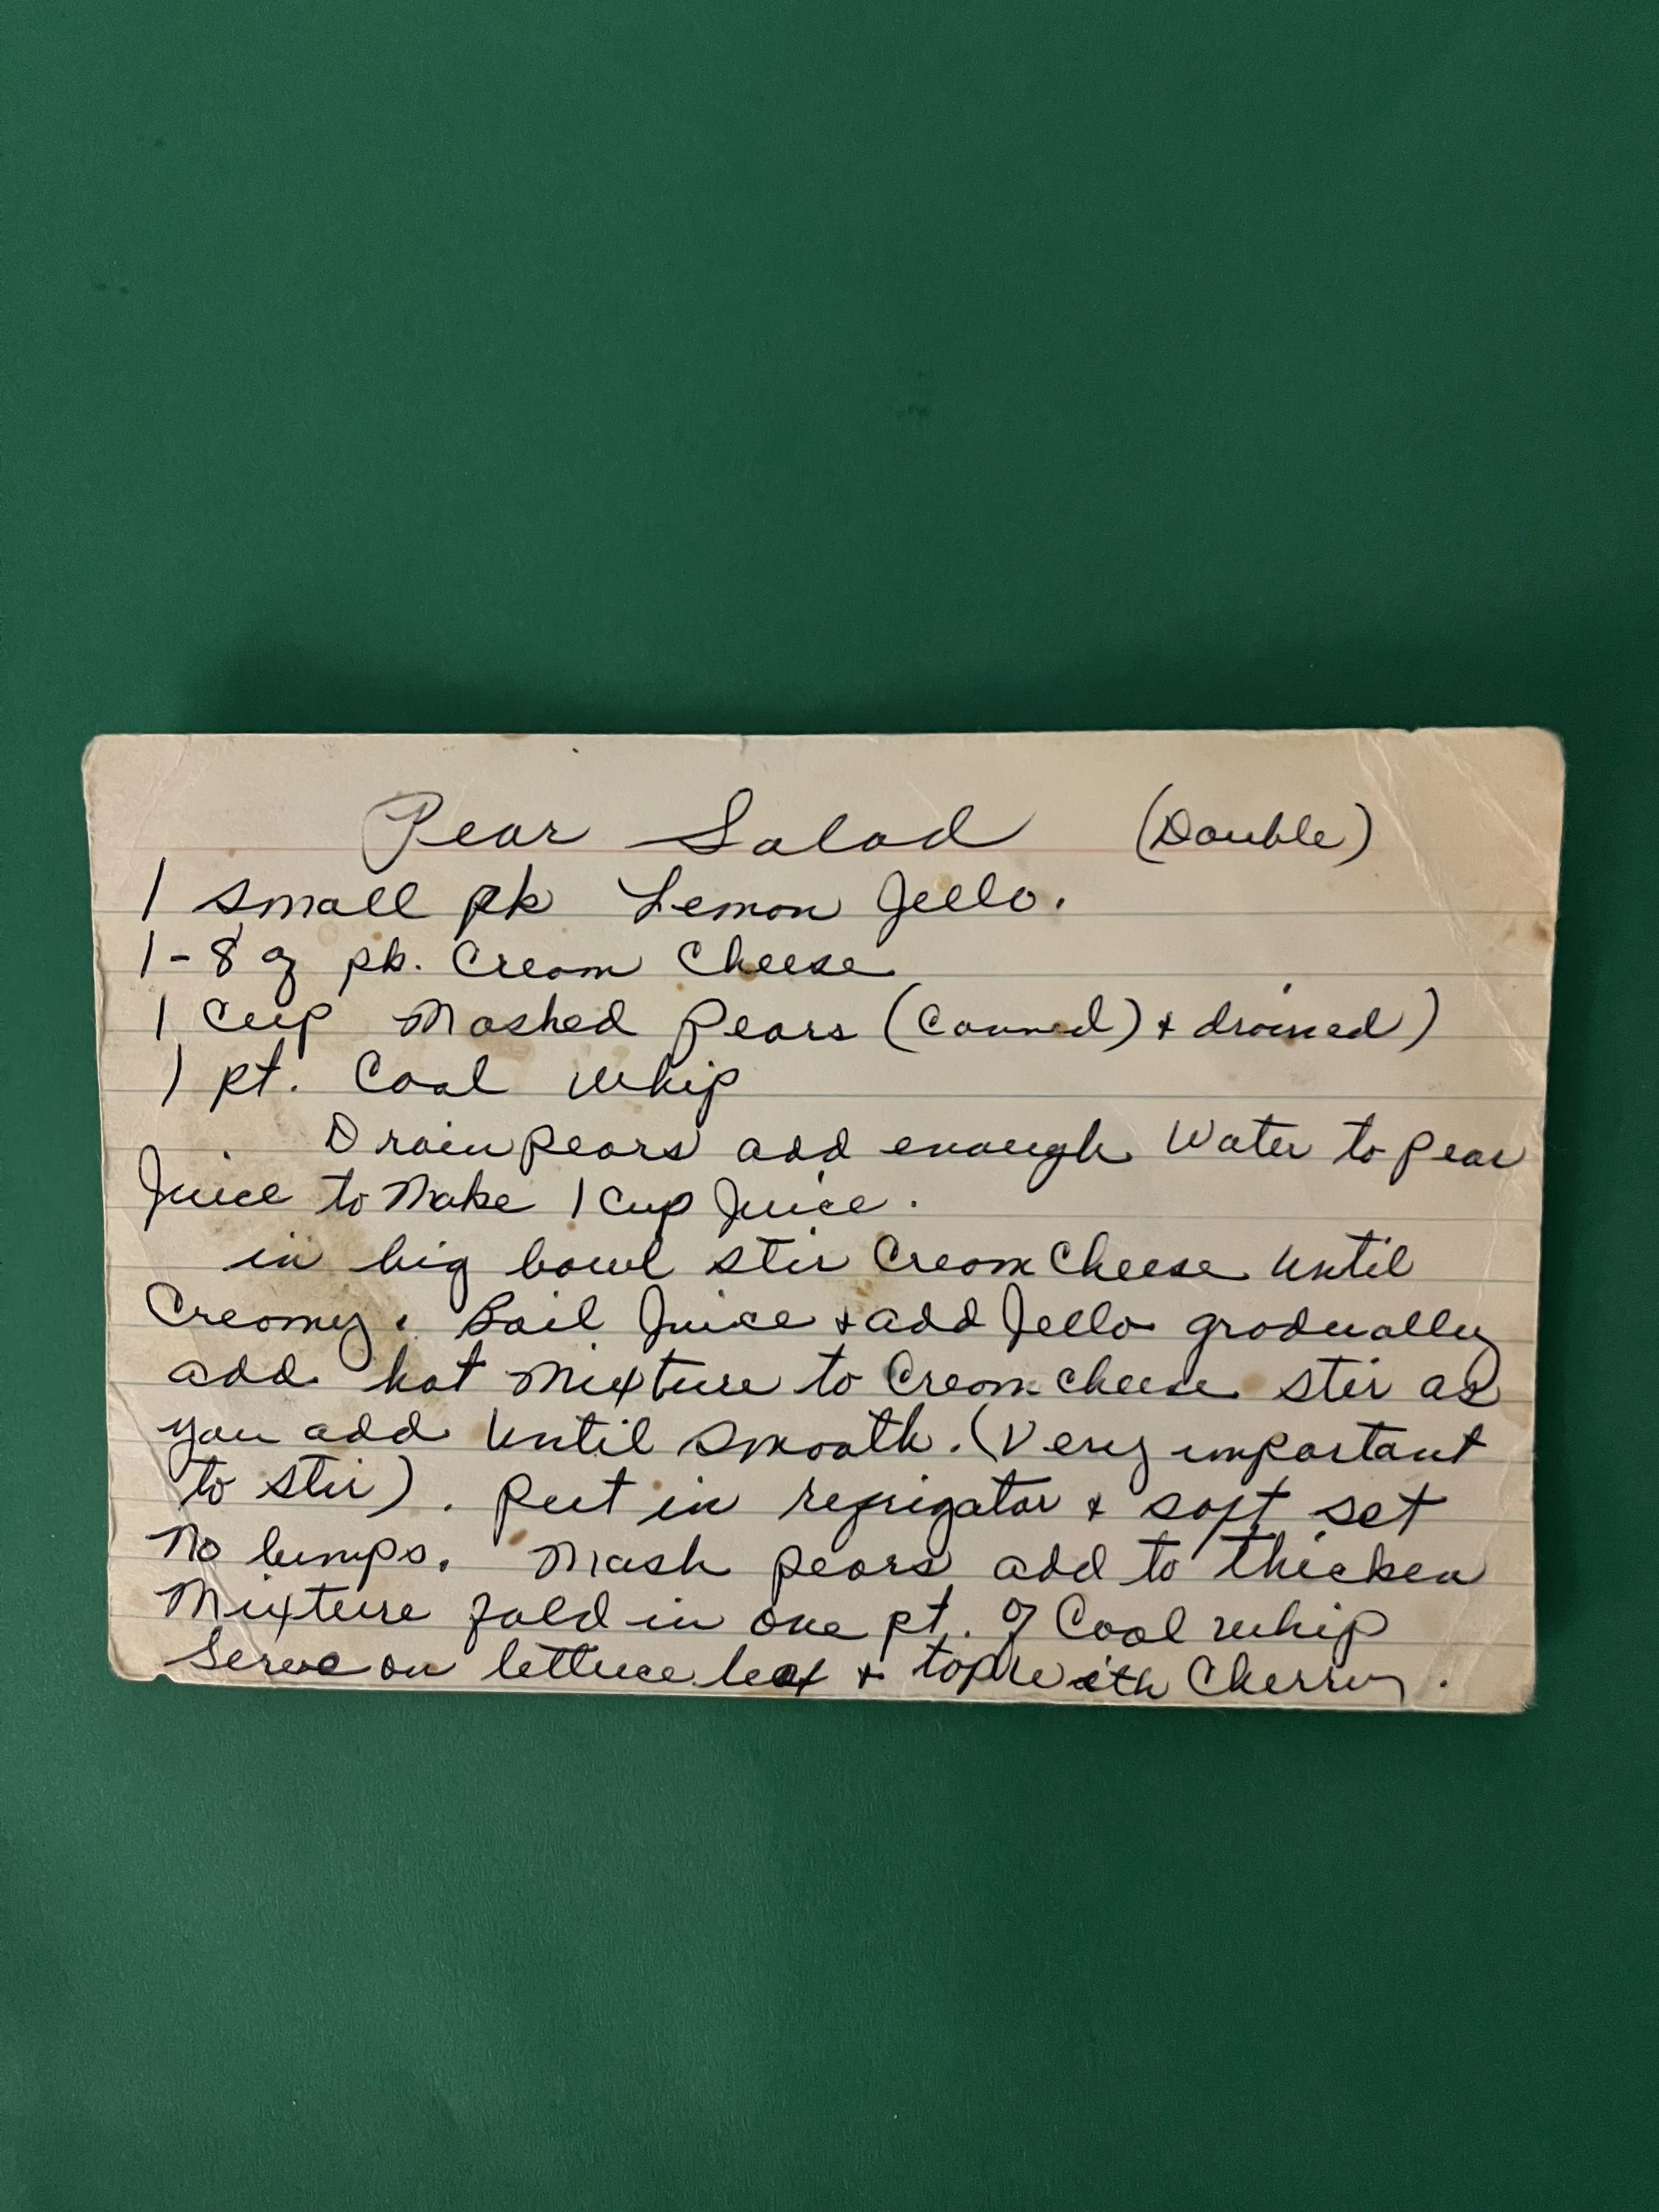 Pear Salad (Double)
1 small pk Lemon Jello.
1-8 oz pk. Cream Cheese
1 Cup Mashed Pears (Canned) + drained)
1 pt. Cool Whip
Drain pears add enough Water to pear
Juice to Make 1 Cup Juice.
in big bowl stir Cream Cheese Until
Creamy. Boil Juice + add Jello gradually
add hot Mixture to Cream cheese stir as
you add Until smooth. (Very important
to stir). Put in refrigator + soft set
No lumps. Mash pears add to thicken
Mixture fold in one pt. of Cool whip
Serve on lettuce leaf + top with Cherry.